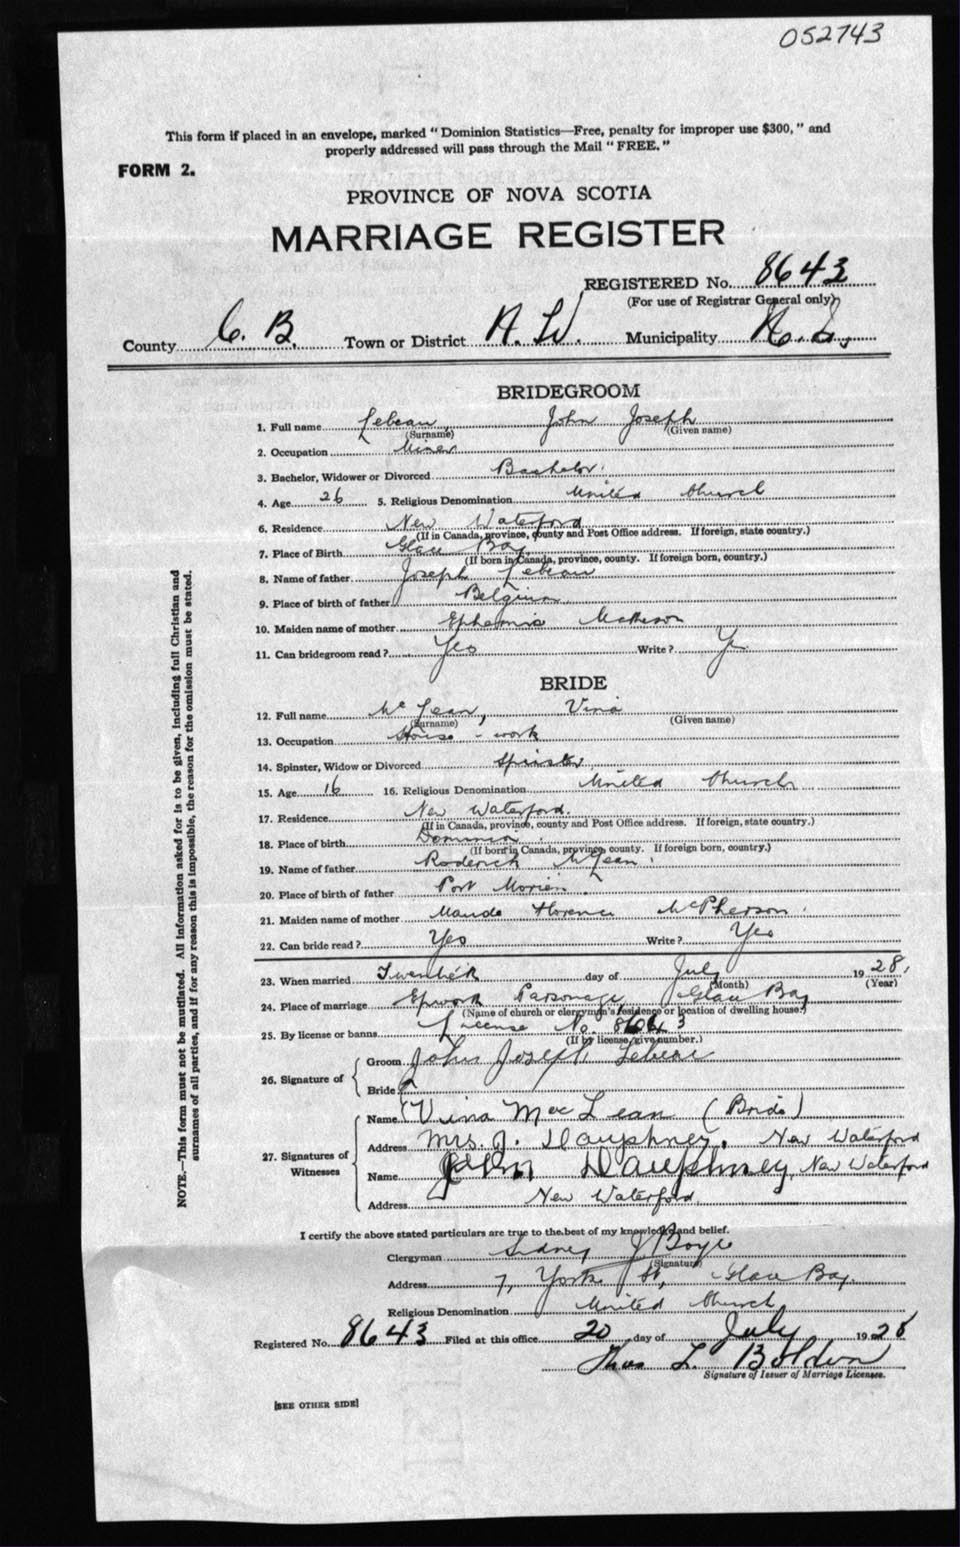 052743
This form if placed in an envelope, marked "Dominion Statistics—Free, penalty for improper use $300," and
properly addressed will pass through the Mail "FREE."
FORM 2.
PROVINCE OF NOVA SCOTIA
MARRIAGE REGISTER
REGISTERED No. 8643
(For use of Registrar General only)
County C. B. Town or District N. W. Municipality
BRIDEGROOM
1. Full name Lebeau, John Joseph
(Surname) (Given name)
2. Occupation Miner
3. Bachelor, Widower or Divorced Bachelor
4. Age 26 5. Religious Denomination United Church
6. Residence New Waterford
(If in Canada, province, county and Post Office address. If foreign, state country.)
7. Place of Birth Glace Bay
(If born in Canada, province, county. If foreign born, country.)
8. Name of father Joseph Lebeau
9. Place of birth of father Belgium
10. Maiden name of mother Ephemia Matheson
11. Can bridegroom read? Yes Write? Yes
BRIDE
12. Full name McLean, Vina
(Surname) (Given name)
13. Occupation House-work
14. Spinster, Widow or Divorced Spinster
15. Age 16 16. Religious Denomination United Church
17. Residence New Waterford.
(If in Canada, province, county and Post Office address. If foreign, state country.)
18. Place of birth Dominion
(If born in Canada, province, county. If foreign born, country.)
19. Name of father Roderick McLean
20. Place of birth of father Port Morien
21. Maiden name of mother Maude Florence McPherson
22. Can bride read? Yes Write? Yes
23. When married Twentieth day of July 1928.
(Month) (Year)
24. Place of marriage Epworth Parsonage Glace Bay
(Name of church or clergyman's residence or location of dwelling house.)
25. By license or banns License No. 8643
(If by license, give number.)
26. Signature of Groom John Joseph Lebeau
Bride
27. Signatures of Witnesses
Name (Vina MacLean (Bride)
Address Mrs. J. Dauphney, New Waterford
Name John Dauphney, New Waterford
Address New Waterford
I certify the above stated particulars are true to the best of my knowledge and belief.
Clergyman Sidney J Boyce
(Signature)
Address 7, York St, Glace Bay.
Religious Denomination United Church
Registered No. 8643 Filed at this office 20 day of July 1928
Thos L. Boldon
Signature of Issuer of Marriage Licenses.
[SEE OTHER SIDE]
NOTE.—This form must not be mutilated. All information asked for is to be given, including full Christian and
surnames of all parties, and if for any reason this is impossible, the reason for the omission must be stated.